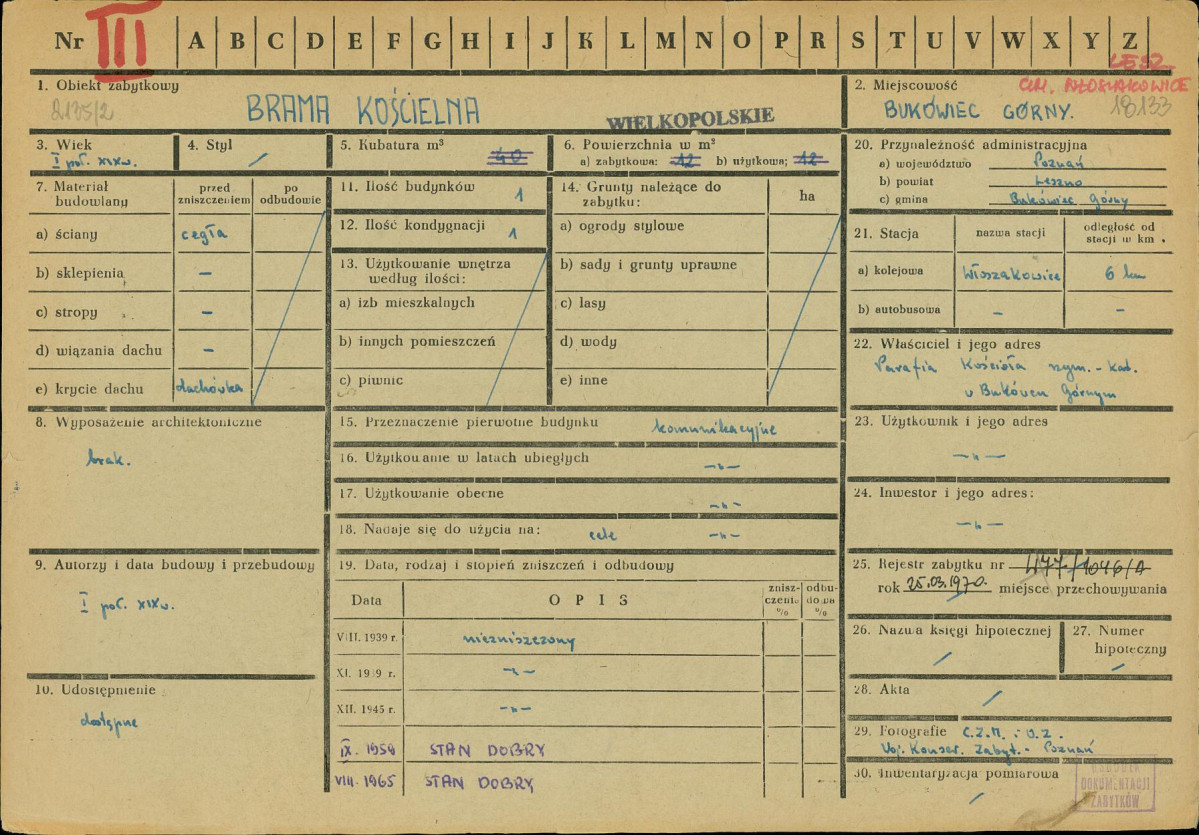 Nr III A B C D E F G H I J K L M N O P R S T U V W X Y Z
LESZ.
1. Obiekt zabytkowy
2135/2
BRAMA KOŚCIELNA
WIELKOPOLSKIE
2. Miejscowość
GM. WŁOSZAKOWICE
BUKÓWIEC GÓRNY.
18133
3. Wiek
I poł. XIXw.
4. Styl /
5. Kubatura m³
40
6. Powierzchnia w m²
a) zabytkowa: 12 b) użytkowa; 12
7. Materiał budowlany
przed zniszczeniem
po odbudowie
a) ściany cegła
b) sklepienia –
c) stropy –
d) wiązania dachu –
e) krycie dachu dachówka
8. Wyposażenie architektoniczne
brak.
9. Autorzy i data budowy i przebudowy
I poł. XIXw.
10. Udostępnienie
dostępne
11. Ilość budynków 1
12. Ilość kondygnacji 1
13. Użytkowanie wnętrza
według ilości:
a) izb mieszkalnych
b) innych pomieszczeń
c) piwnic
14. Grunty należące do
zabytku:
ha
a) ogrody stylowe
b) sady i grunty uprawne
c) lasy
d) wody
e) inne
15. Przeznaczenie pierwotne budynku komunikacyjne
16. Użytkowanie w latach ubiegłych –"–
17. Użytkowanie obecne –"–
18. Nadaje się do użycia na: cele –"–
19. Data, rodzaj i stopień zniszczeń i odbudowy
Data OPIS zniszczenia % odbudowa %
VIII. 1939 r. niezniszczony
XI. 1939 r. –"–
XII. 1945 r. –"–
IX. 1959 STAN DOBRY
VIII. 1965 STAN DOBRY
20. Przynależność administracyjna
a) województwo Poznań
b) powiat Leszno
c) gmina Bukówiec Górny
21. Stacja
nazwa stacji
odległość od stacji w km.
a) kolejowa Włoszakowice 6 km
b) autobusowa – –
22. Właściciel i jego adres
Parafia Kościoła rzym.-kat.
w Bukówcu Górnym
23. Użytkownik i jego adres
–"–
24. Inwestor i jego adres:
–"–
25. Rejestr zabytku nr 477/1046/A
rok 25.03.1970. miejsce przechowywania
26. Nazwa księgi hipotecznej
/
27. Numer hipoteczny
/
28. Akta /
29. Fotografie C.Z.M. i O.Z.
Woj. Konser. Zabyt. - Poznań
30. Inwentaryzacja pomiarowa
/
DOKUMENTACJI
ZABYTKÓW